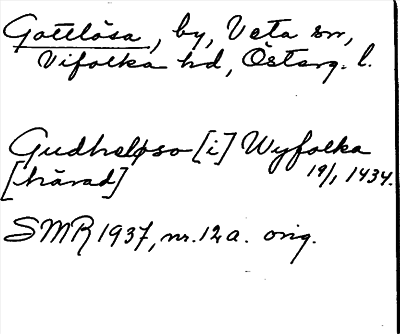 Gottlösa, by, Veta sn,
Vifolka hd, Österg. l.
Gudheløso [i] Wyfolka
[härad] 19/1 1434.
SMR 1937, nr. 12a. orig.